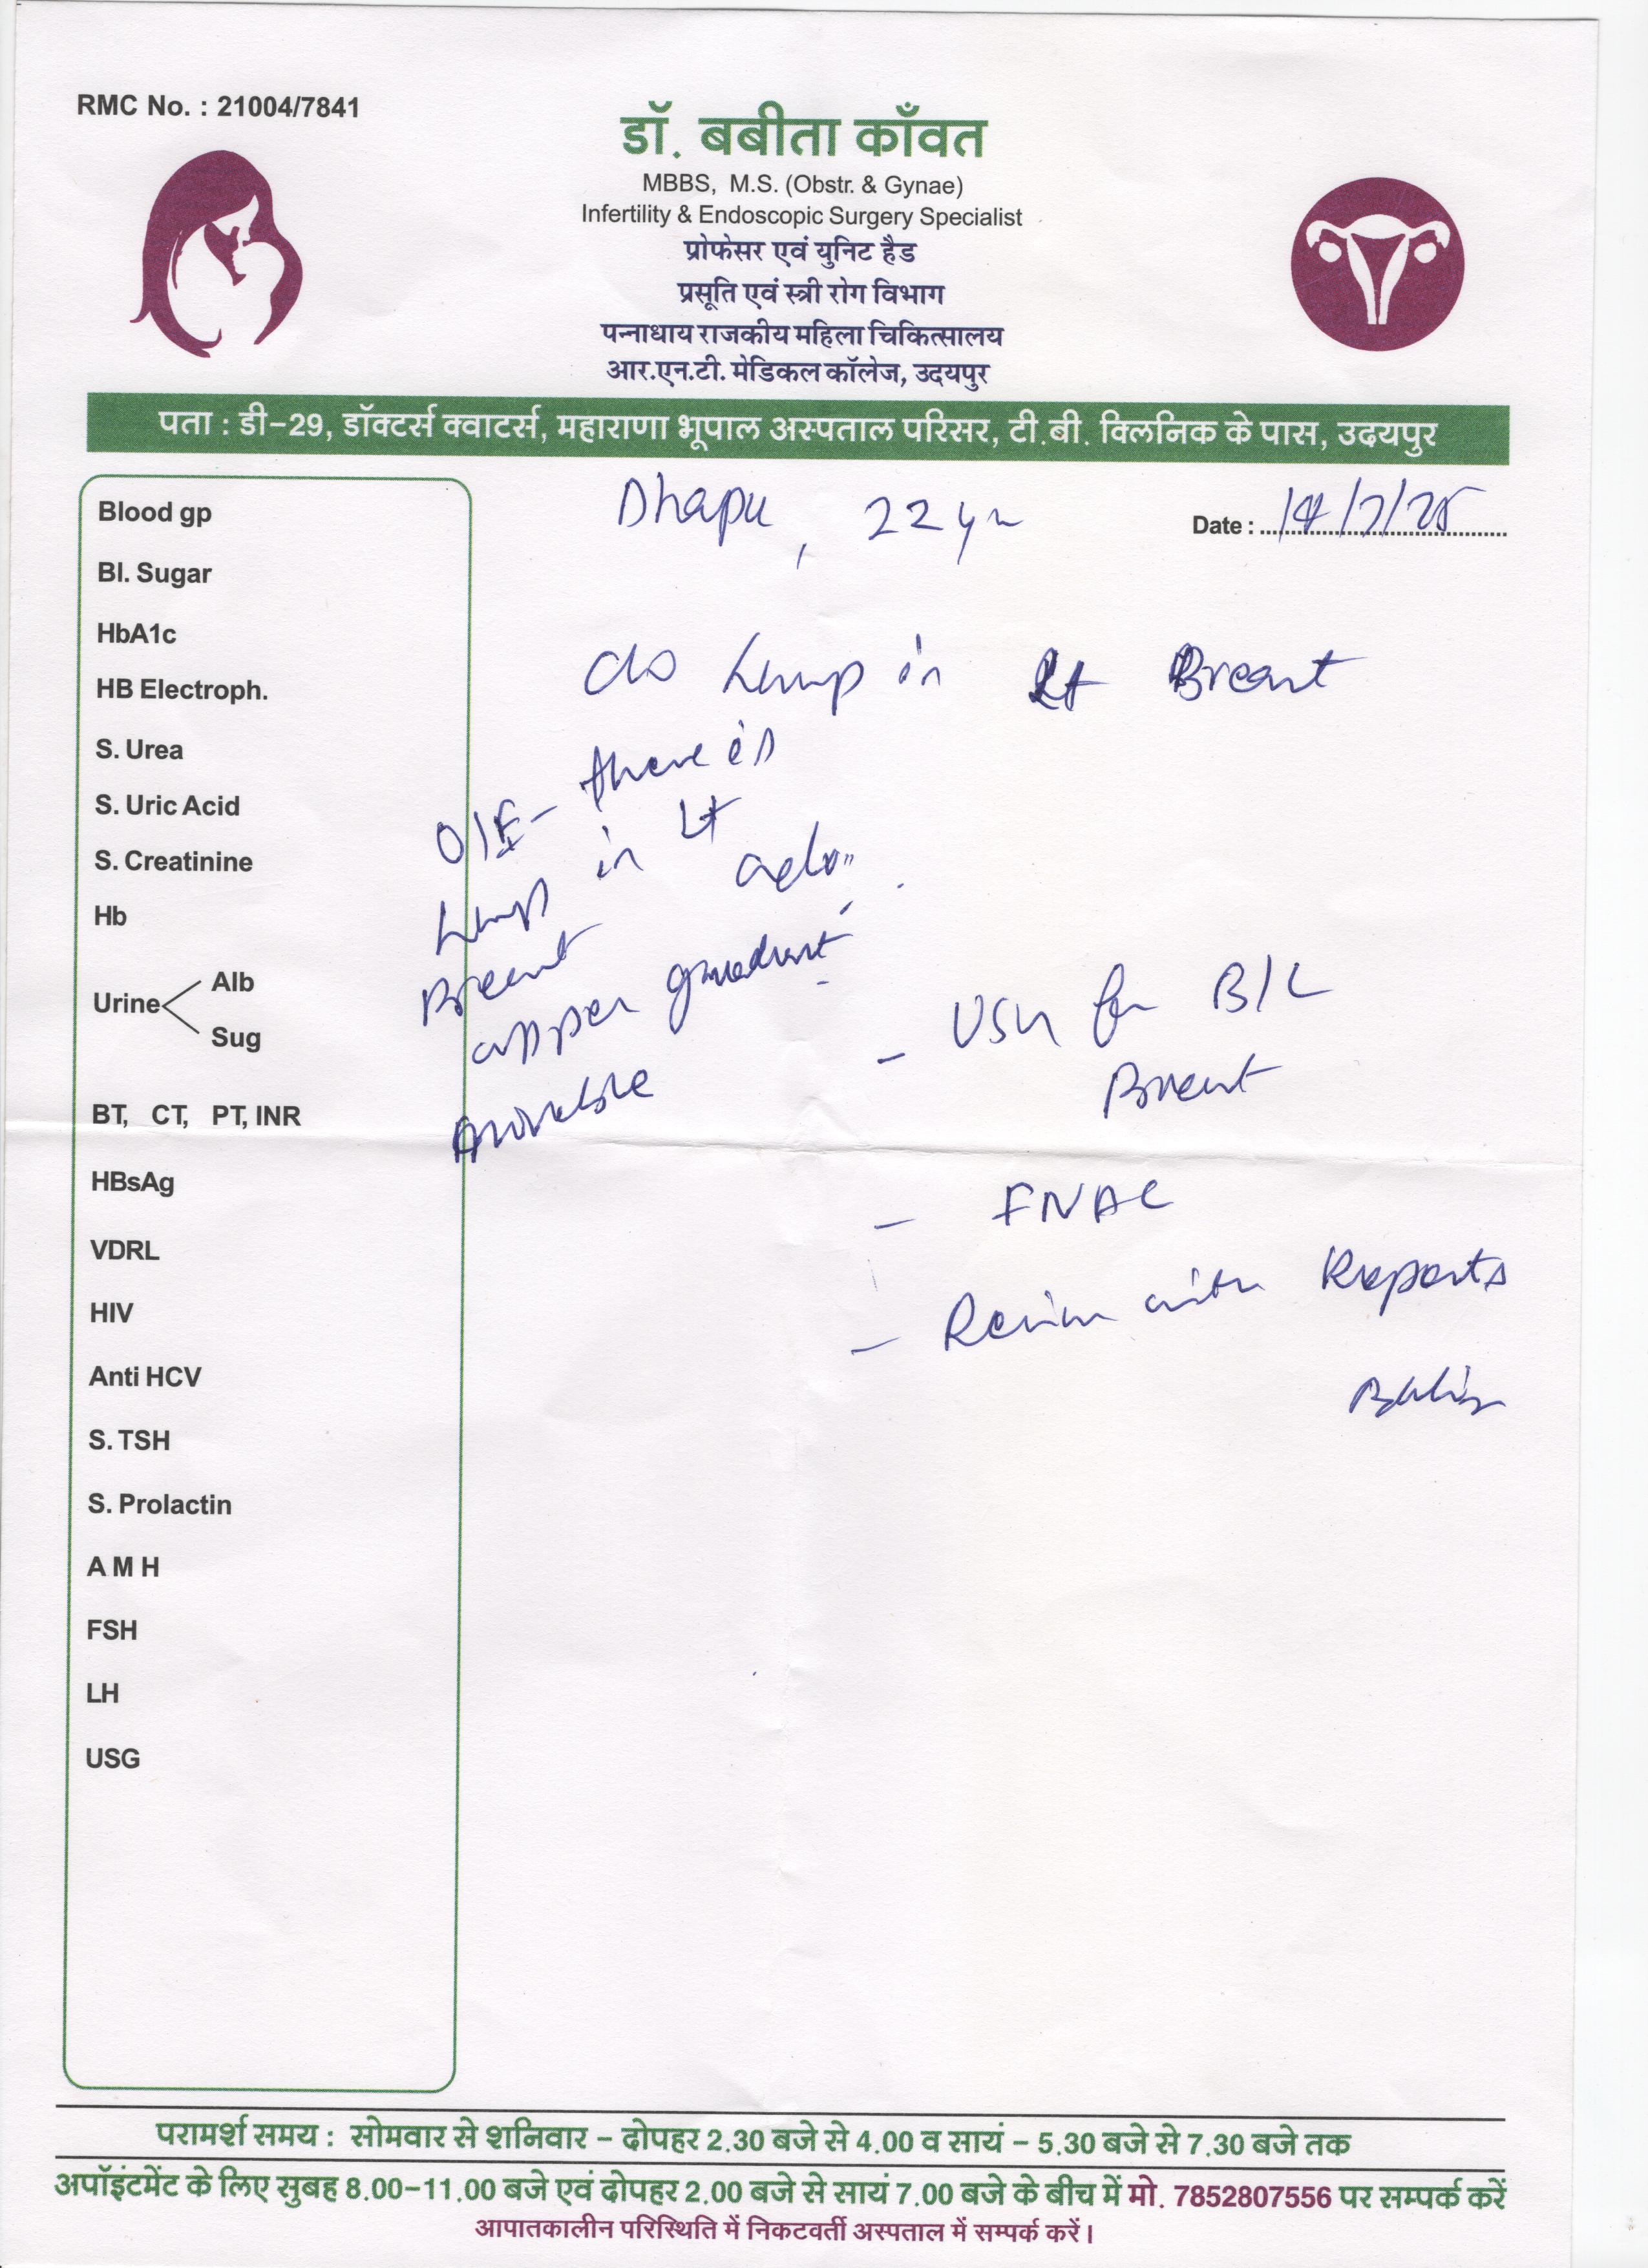 RMC No. : 21004/7841
डॉ. बबीता काँवत
MBBS, M.S. (Obstr. & Gynae)
Infertility & Endoscopic Surgery Specialist
प्रोफेसर एवं युनिट हैड
प्रसूति एवं स्त्री रोग विभाग
पन्नाधाय राजकीय महिला चिकित्सालय
आर.एन.टी. मेडिकल कॉलेज, उदयपुर
पता : डी-29, डॉक्टर्स क्वाटर्स, महाराणा भूपाल अस्पताल परिसर, टी.बी. क्लिनिक के पास, उदयपुर
Dhapu, 22 yr
Date : 14/7/25
Blood gp
Bl. Sugar
HbA1c
HB Electroph.
S. Urea
S. Uric Acid
S. Creatinine
Hb
Urine Alb
Sug
BT, CT, PT, INR
HBsAg
VDRL
HIV
Anti HCV
S. TSH
S. Prolactin
A M H
FSH
LH
USG
c/o Lump in Lt Breast
O/E - there is
Lump in Lt
Breast
upper quadrant
movable
- USG for B/L
Breast
- FNAC
- Review with Reports
परामर्श समय : सोमवार से शनिवार - दोपहर 2.30 बजे से 4.00 व सायं - 5.30 बजे से 7.30 बजे तक
अपॉइंटमेंट के लिए सुबह 8.00-11.00 बजे एवं दोपहर 2.00 बजे से सायं 7.00 बजे के बीच में मो. 7852807556 पर सम्पर्क करें
आपातकालीन परिस्थिति में निकटवर्ती अस्पताल में सम्पर्क करें।